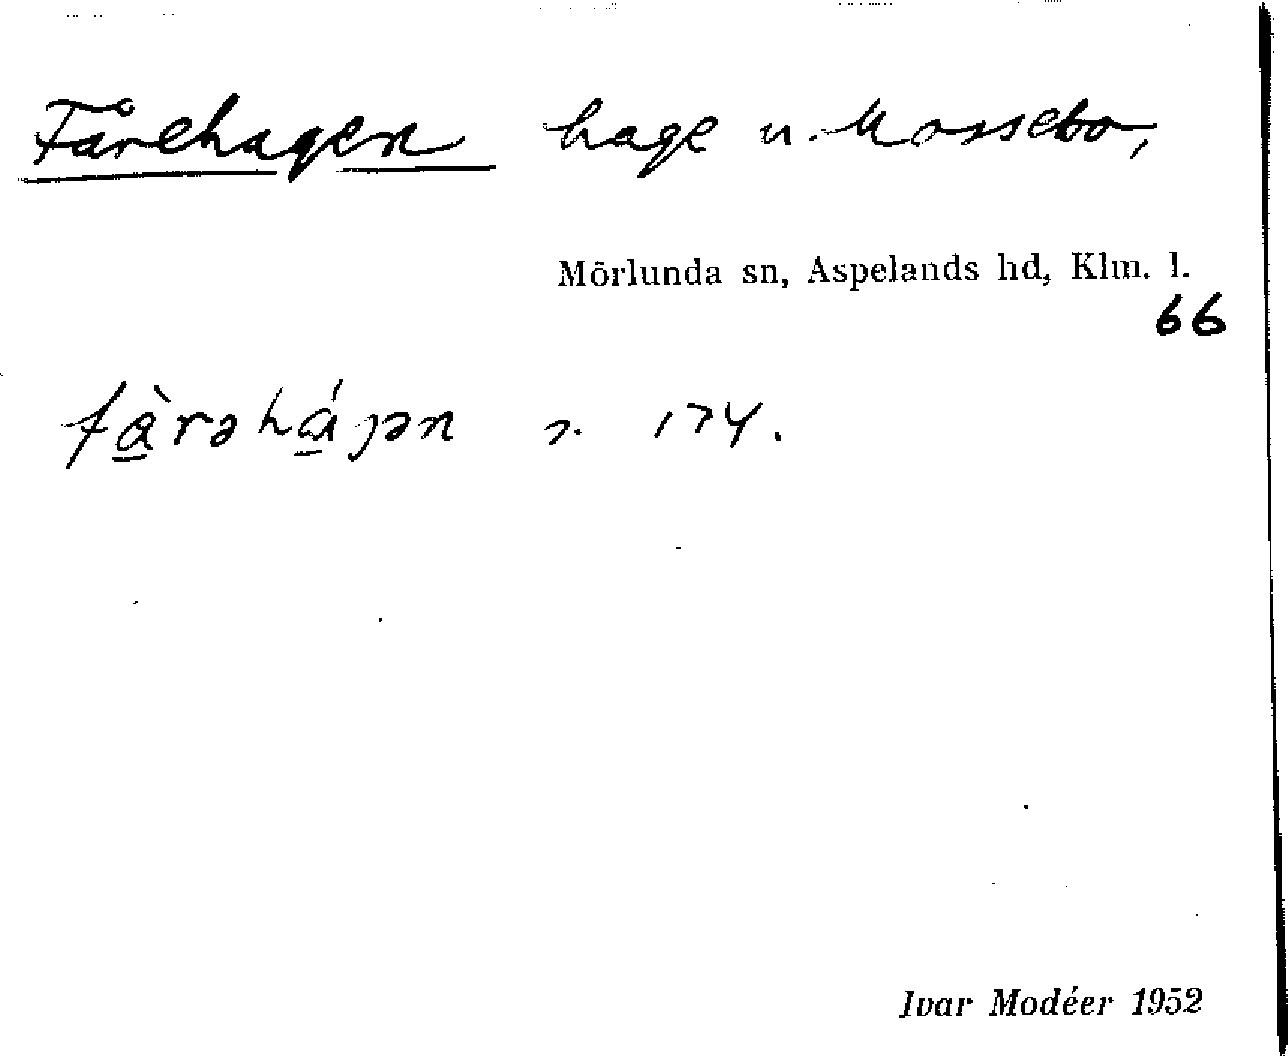 Fårehagen hage u. Mossebo,
Mörlunda sn, Aspelands hd, Klm. l.
66
fà̱rəhá̱ɡən 174.
Ivar Modéer 1952